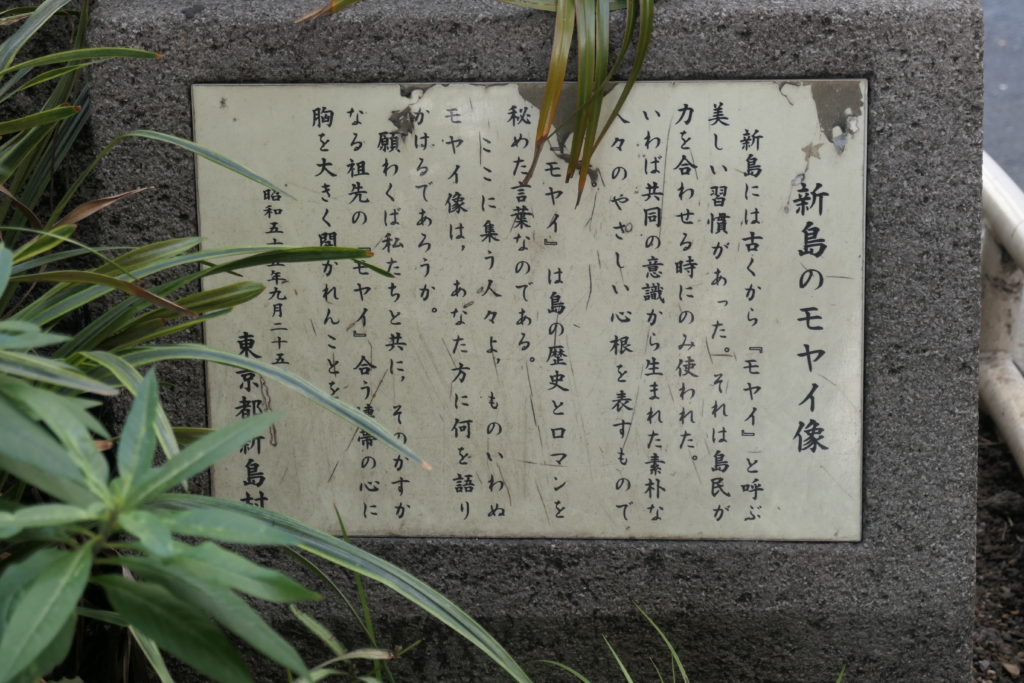 新島のモヤイ像
新島には古くから『モヤイ』と呼ぶ
美しい習慣があった。それは島民が
力を合わせる時にのみ使われた。
いわば共同の意識から生まれた素朴な
人々のやさしい心根を表すもので
『モヤイ』は島の歴史とロマンを
秘めた言葉なのである。
ここに集う人々よ，ものいわぬ
モヤイ像は，あなた方に何を語り
かけるであろうか。
願わくば私たちと共に，そのかすか
なる祖先の『モヤイ』合う 心に
胸を大きく開かれんことを
昭和五十五年九月二十五
東京都新島村